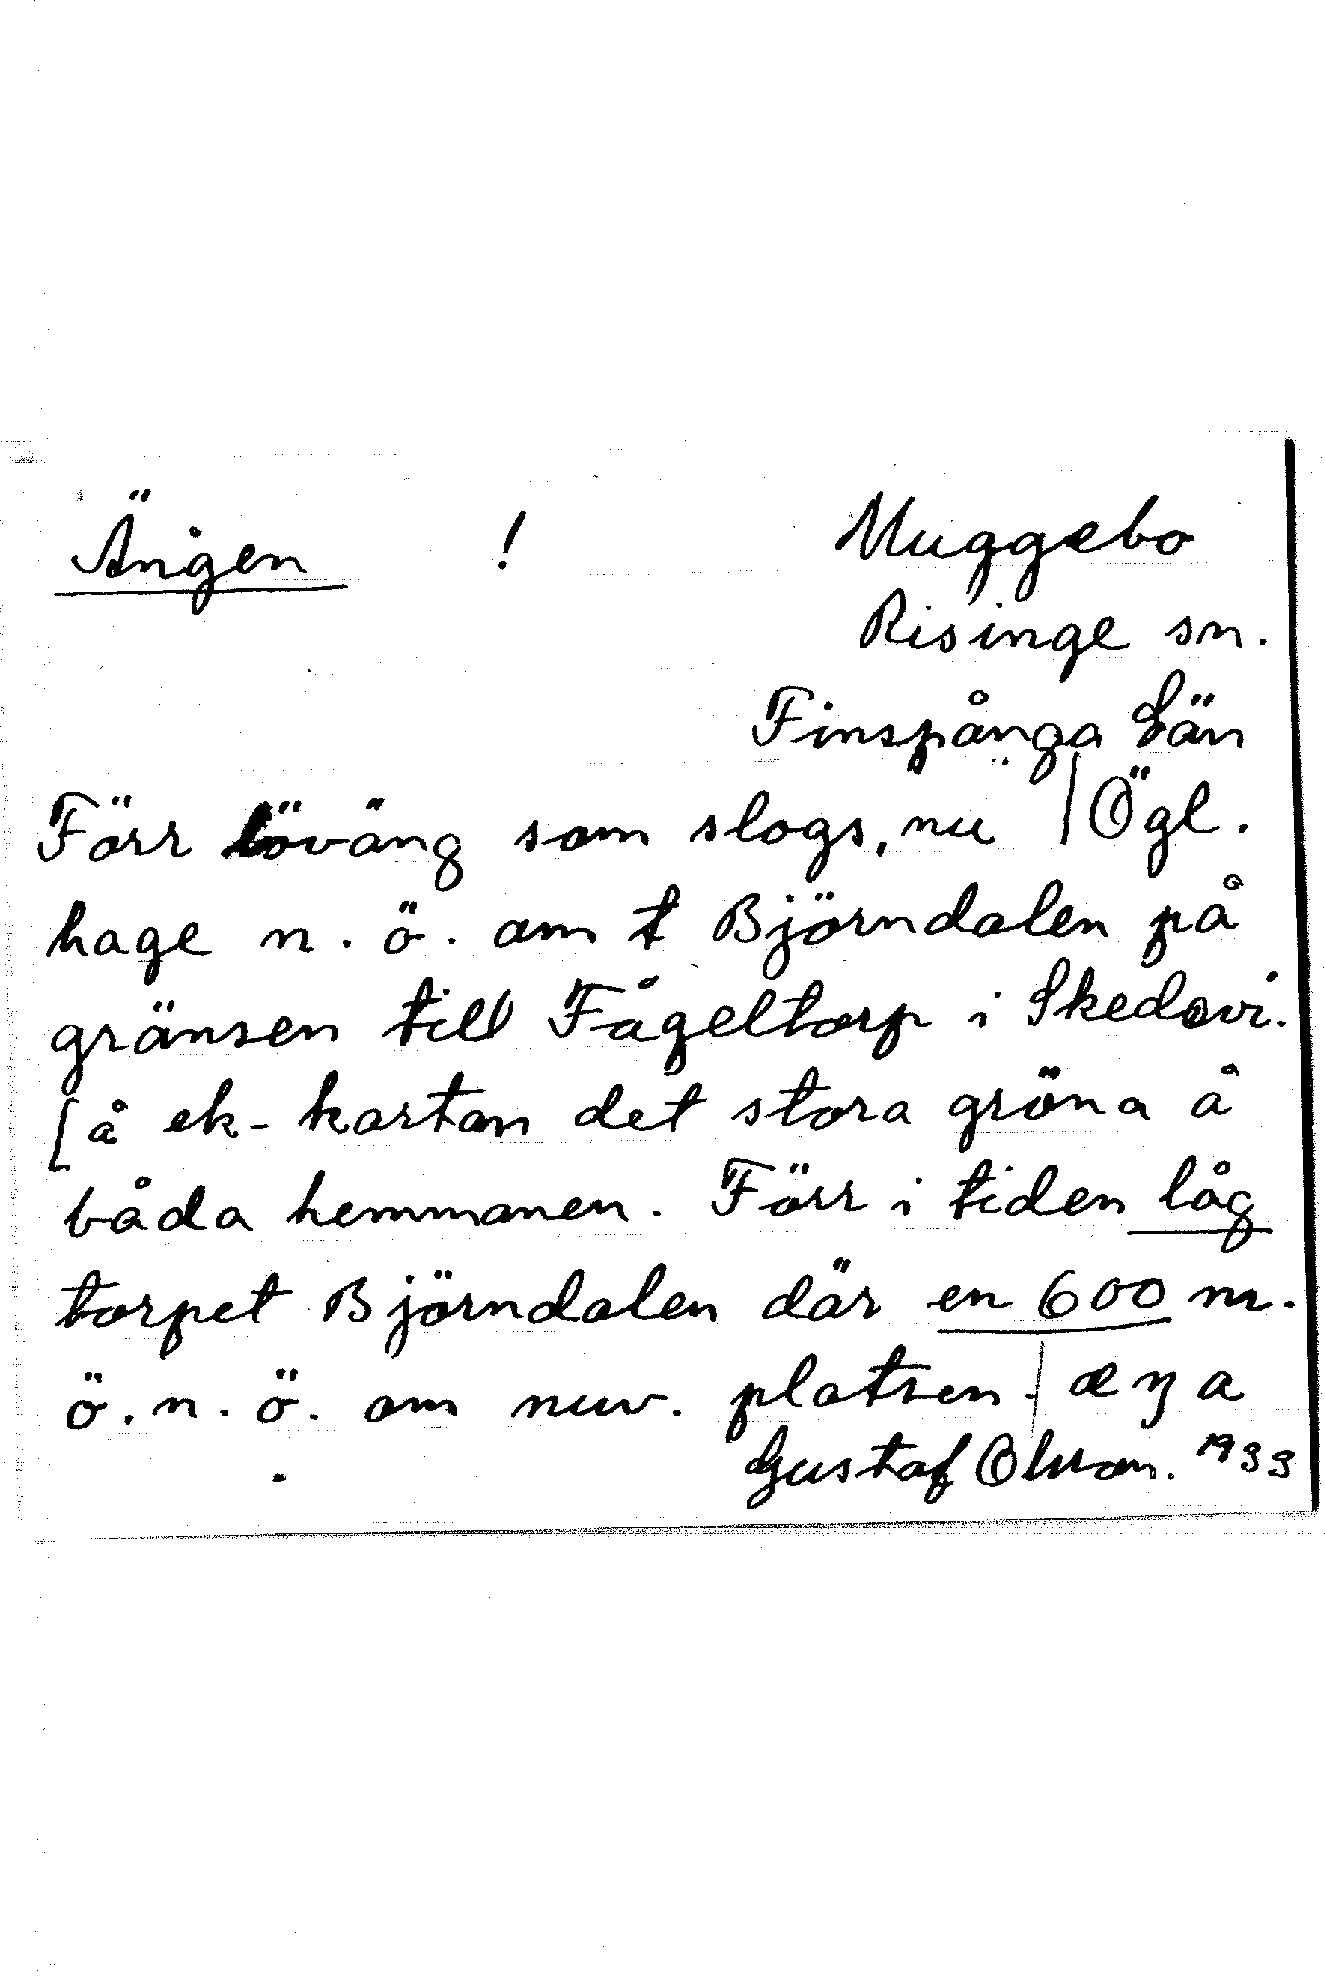 Ängen ! Muggebo
Risinge sn.
Finspånga Län
Förr löväng som slogs, nu / Ögl.
hage n. ö. om t Björndalen på
gränsen till Fågeltorp i Skedevi.
[å ek-kartan det stora gröna å
båda hemmanen. Förr i tiden låg
torpet Björndalen där en 600 m.
ö. n. ö. om nuv. platsen.
Gustaf Olsson. 1933